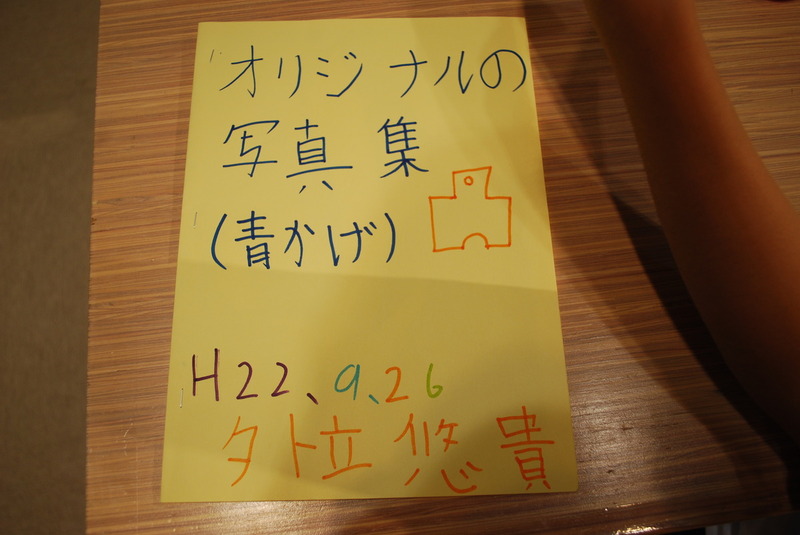 オリジナルの
写真集
(青かげ)
H22、9、26
外立悠貴